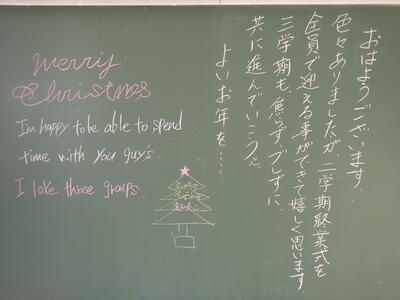 おはようございます.
色々ありましたが、二学期終業式を
全員で迎える事ができて嬉しく思います.
三学期も、焦らずブレずに、
共に進んでいこう。
よいお年を….
Merry
Christmas
I'm happy to be able to spend
time with you guy's
I love three groups.